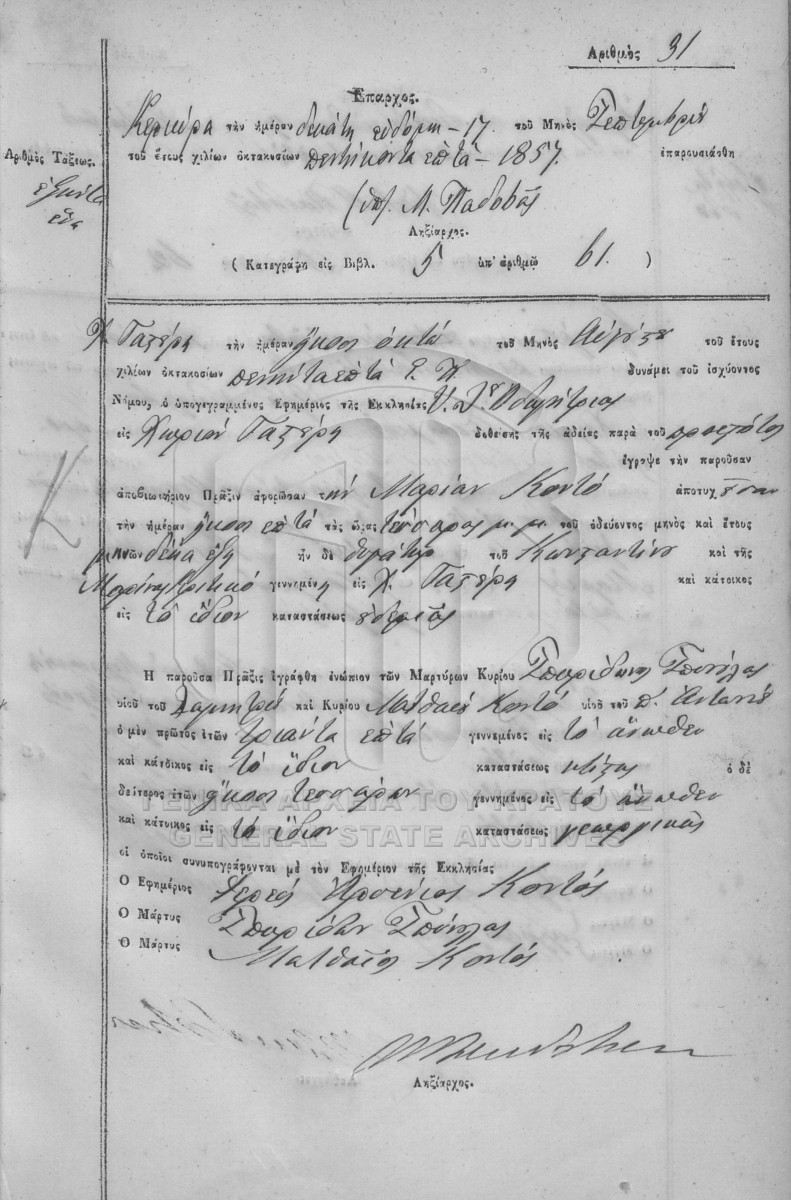 Ἀριθμὸς 31
Ἔπαρχος.
Κερκύρα τὴν ἡμέραν δεκάτη εὐδόμη - 17. τοῦ Μηνὸς Σεπτεμβρίου
Ἀριθμὸς Τάξεως.
τοῦ ἔτους χιλίων ὀκτακοσίων πεντήκοντα ἑπτὰ - 1857. ἐπαρουσιάσθη
ἑξῆντα
ἕνα
(ὑπ. Μ. Παδοβᾶς
Ληξίαρχος.
( Κατεγράφη εἰς Βιβλ. 5 ὑπ' ἀριθμῷ 61. )
Χ. τὴν ἡμέραν ἤκοσι ὀκτὼ τοῦ Μηνὸς Αὐγούστου τοῦ ἔτους
χιλίων ὀκτακοσίων πενῆντα ἑπτὰ Ε. Π. δυνάμει τοῦ ἰσχύοντος
Νόμου, ὁ ὑπογεγραμμένος Ἐφημέριος τῆς Ἐκκλησίας Ὁδηγήτριας
εἰς Χωριὸν δοθείσης τῆς ἀδείας παρὰ τοῦ προεστότος
ἔγραψε τὴν παροῦσαν
ἀποβιωτήριον Πρᾶξιν ἀφορῶσαν τὴν Μαρίαν Κοντὸ ἀποτυχοῦσαν
τὴν ἡμέραν ἤκοσι ἑπτὰ τὰς ὥρας τέσσαρας μ. μ. τοῦ ὁδεύοντος μηνὸς καὶ ἔτους
μηνῶν δέκα ἕξη ἦν δὲ θυγάτηρ τοῦ Κωνσταντίνου καὶ τῆς
γεννημένη εἰς Χ. καὶ κάτοικος
εἰς τὸ ἴδιον καταστάσεως
Ἡ παροῦσα Πρᾶξις ἐγράφθη ἐνώπιον τῶν Μαρτύρων Κυρίου Σπυρίδωνος
υἱοῦ τοῦ Δημητρίου καὶ Κυρίου Ματθαίου Κοντὸ υἱοῦ τοῦ π. Ἀντωνίου
ὁ μὲν πρῶτος ἐτῶν τριάντα ἑπτὰ γεννημένος εἰς τὸ ἄνωθεν
καὶ κάτοικος εἰς τὸ ἴδιον καταστάσεως ὁ δὲ
δεύτερος ἐτῶν ἤκοσι τεσσάρων γεννημένος εἰς τὸ ἄνωθεν
καὶ κάτοικος εἰς τὸ ἴδιον καταστάσεως γεωργικῆς
οἱ ὁποῖοι συνυπογράφονται μὲ τὸν Ἐφημέριον τῆς Ἐκκλησίας
Ὁ Ἐφημέριος Ἱερεὺς Ἀρσένιος Κοντός
Ὁ Μάρτυς Σπυρίδων
Ὁ Μάρτυς Ματθαῖος Κοντός
Ληξίαρχος.
ΓΕΝΙΚΑ ΑΡΧΕΙΑ ΤΟΥ ΚΡΑΤΟΥΣ
GENERAL STATE ARCHIVES